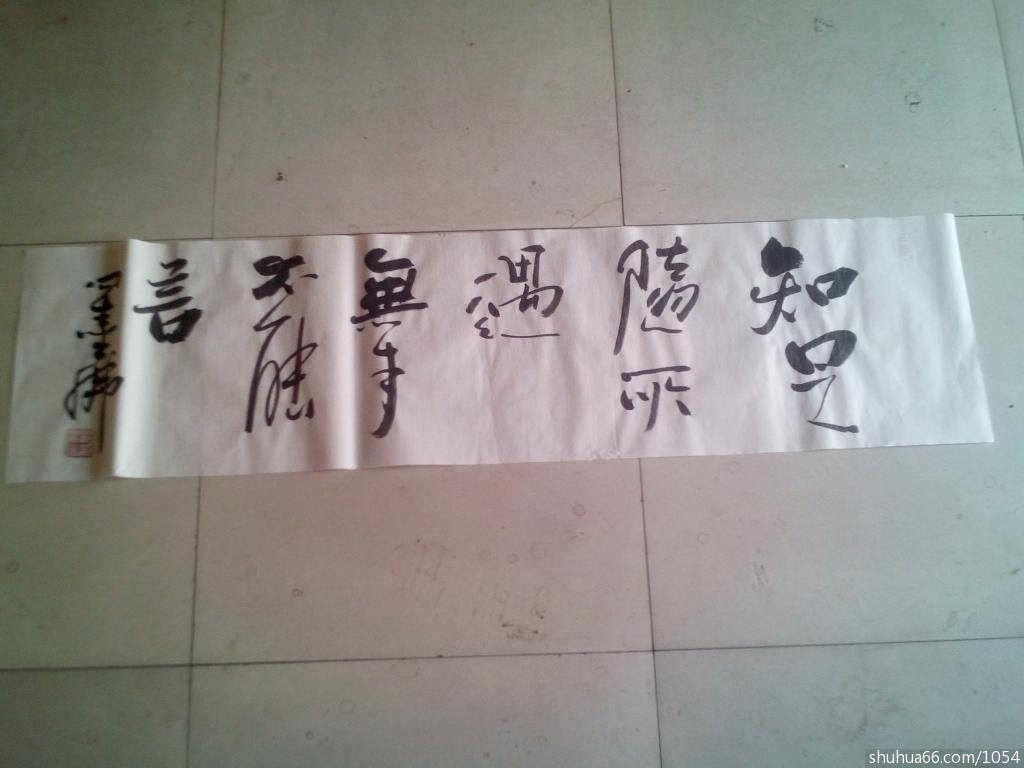 知足
隨所
遇
無事
不應
言
shuhua66.com/1054